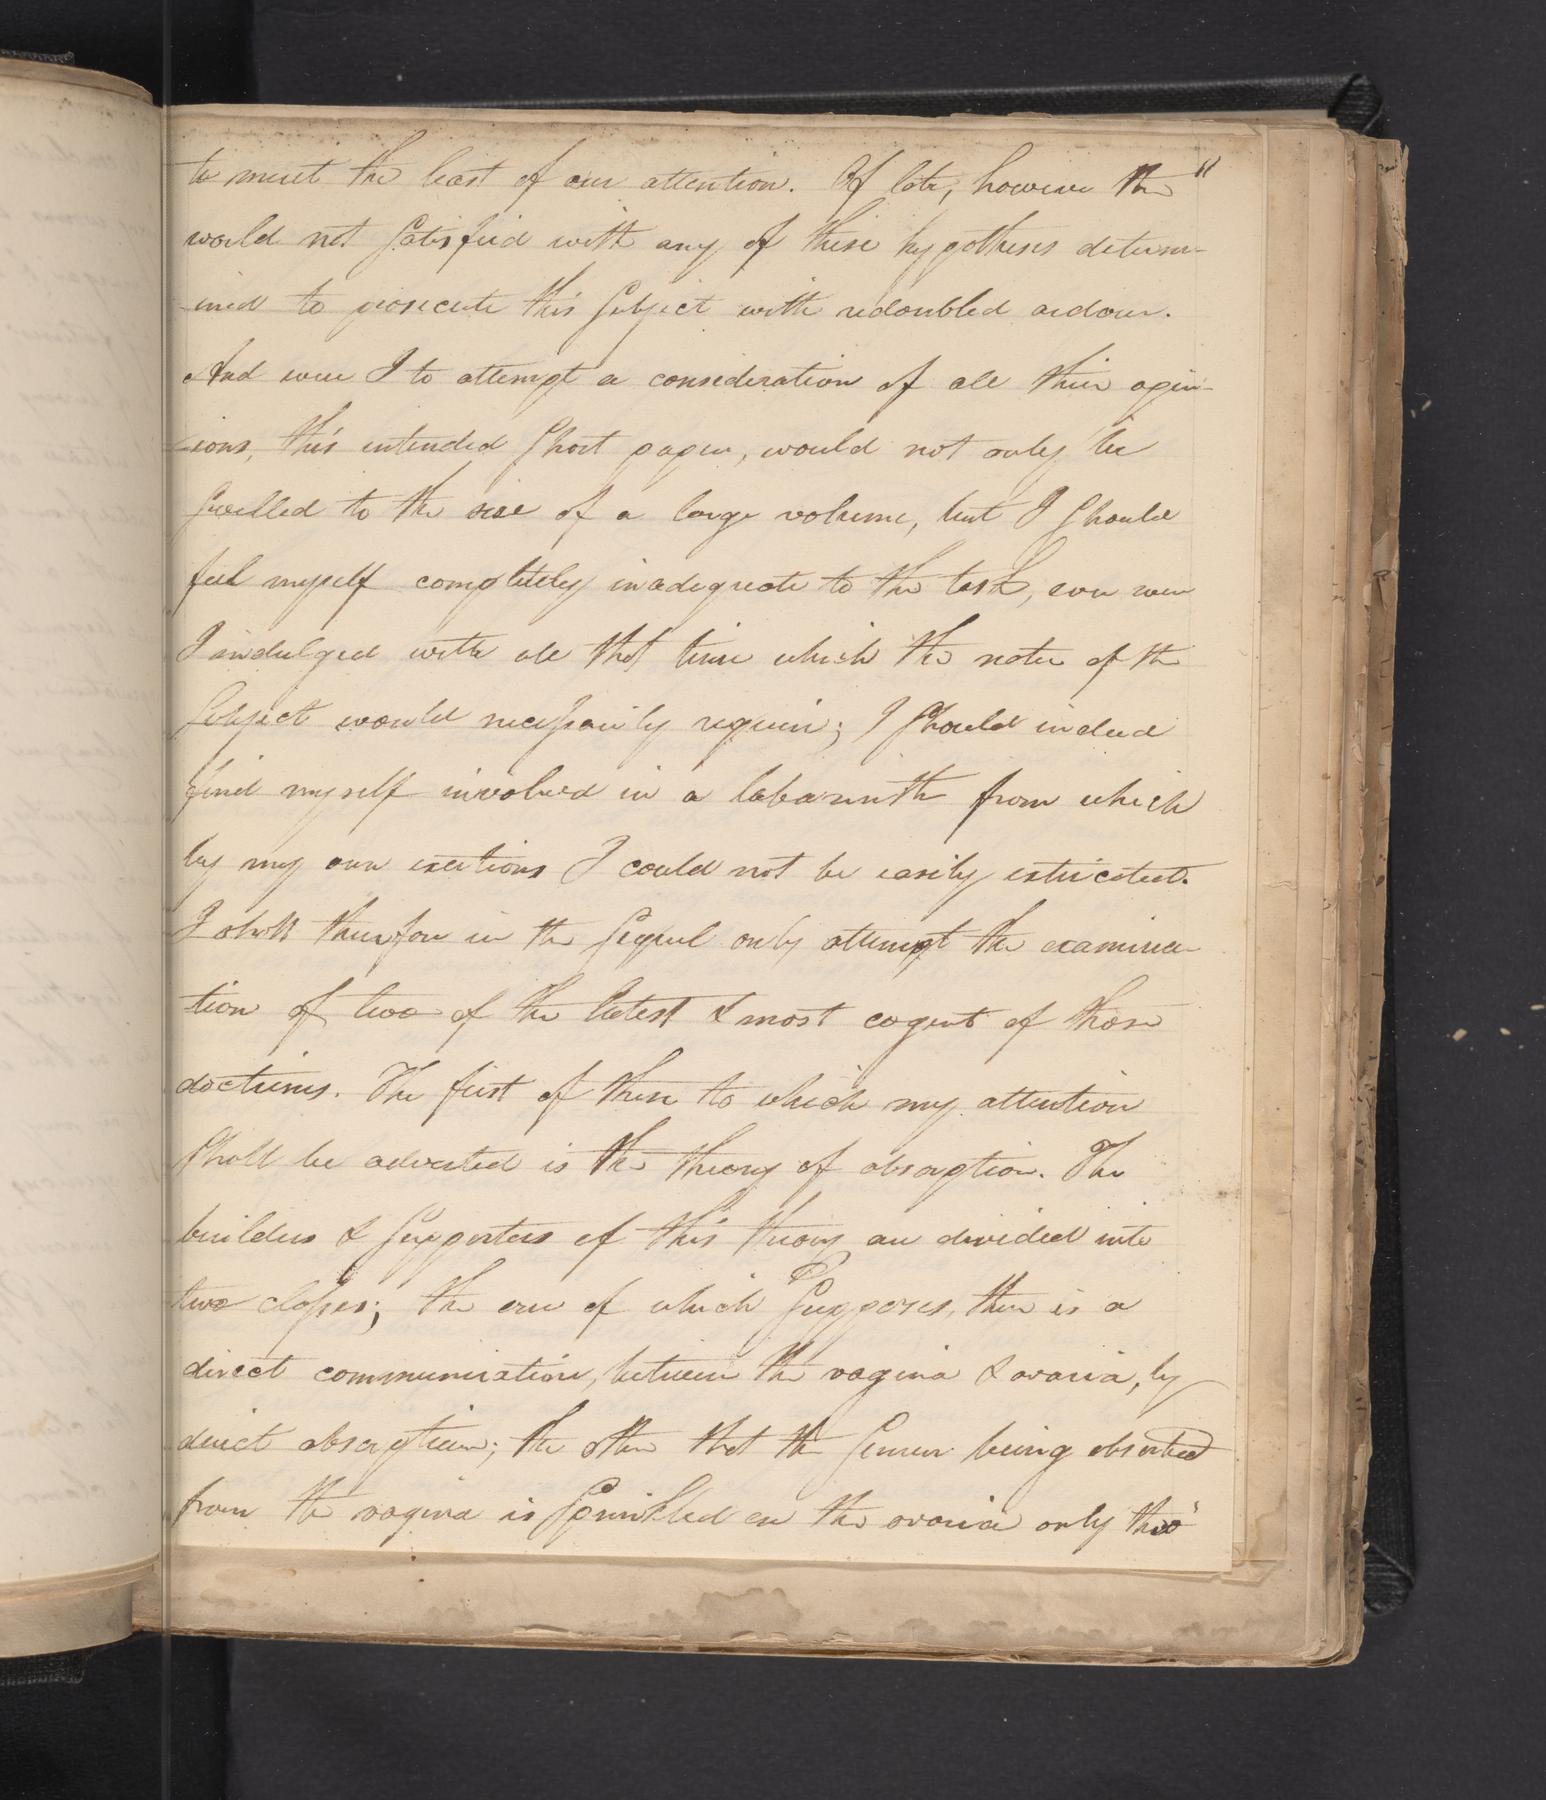 to merit the least of our attention. Of late, however the "
world not satisfied with any of these hypotheses determ-
ined to prosecute this subject with redoubled ardour.
And were I to attempt a consideration of all their opin-
-ions, this intended short paper, would not only be
swelled to the size of a large volume, but I should
feel myself completely inadequate to the task, even were
I indulged with all that time which the nature of the
subject would necessarily require; I should indeed
find myself involved in a labarinth from which
by my own exertions I could not be easily extricated.
I shall therefore in the sequel only attempt the examina-
tion of two of the latest & most cogent of those
doctrines. The first of these to which my attention
shall be adverted is the theory of absorption. The
builders & supporters of this theory are divided into
two classes; the one of which supposes, there is a
direct communication, between the vagina & ovaria, by
direct absorption; the other that the semen being absorbed
from the vagina is sprinkled on the ovaria only thro'